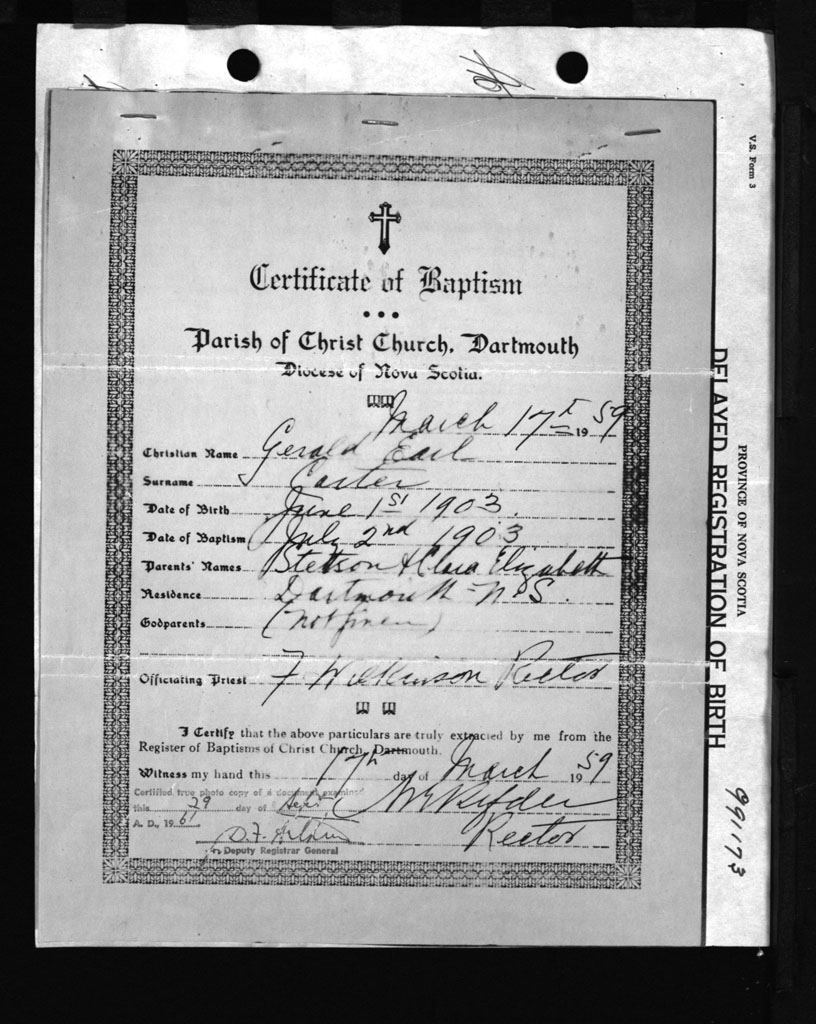 Certificate of Baptism
Parish of Christ Church, Dartmouth
Diocese of Nova Scotia.
March 17th 1959
Christian Name Gerald Earl
Surname Carter
Date of Birth June 1st 1903.
Date of Baptism July 2nd 1903
Parents' Names Stetson & Clara Elizabeth
Residence Dartmouth - N.S.
Godparents (not given)
Officiating Priest F Wilkinson Rector
I Certify that the above particulars are truly extracted by me from the
Register of Baptisms of Christ Church, Dartmouth.
Witness my hand this 17th day of March 1959
Certified true photo copy of a document examined
this 29 day of Sept
A. D., 1961
Rector
for Deputy Registrar General
V.S. Form 3
PROVINCE OF NOVA SCOTIA
DELAYED REGISTRATION OF BIRTH
991173